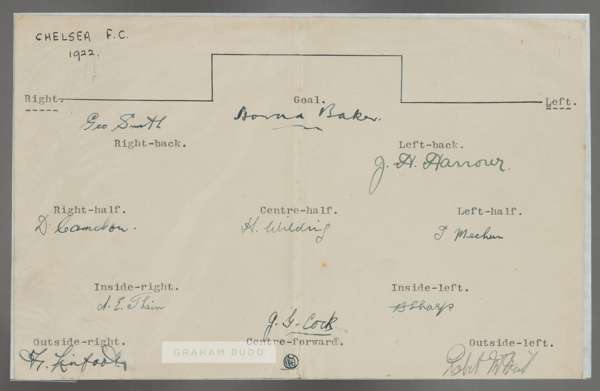 CHELSEA F.C.
1922.
Right.
Goal.
Left.
Geo Smith
Baker.
Right-back.
Left-back.
J. H. Harrow.
Right-half.
Centre-half.
Left-half.
D Cameron.
H. Wilding
T Meehan
Inside-right.
Inside-left.
A. E. Thain
B Sharp
J. G. Cock
Outside-right.
Centre-forward.
Outside-left.
H. Linfoot
GRAHAM BUDD
Robt